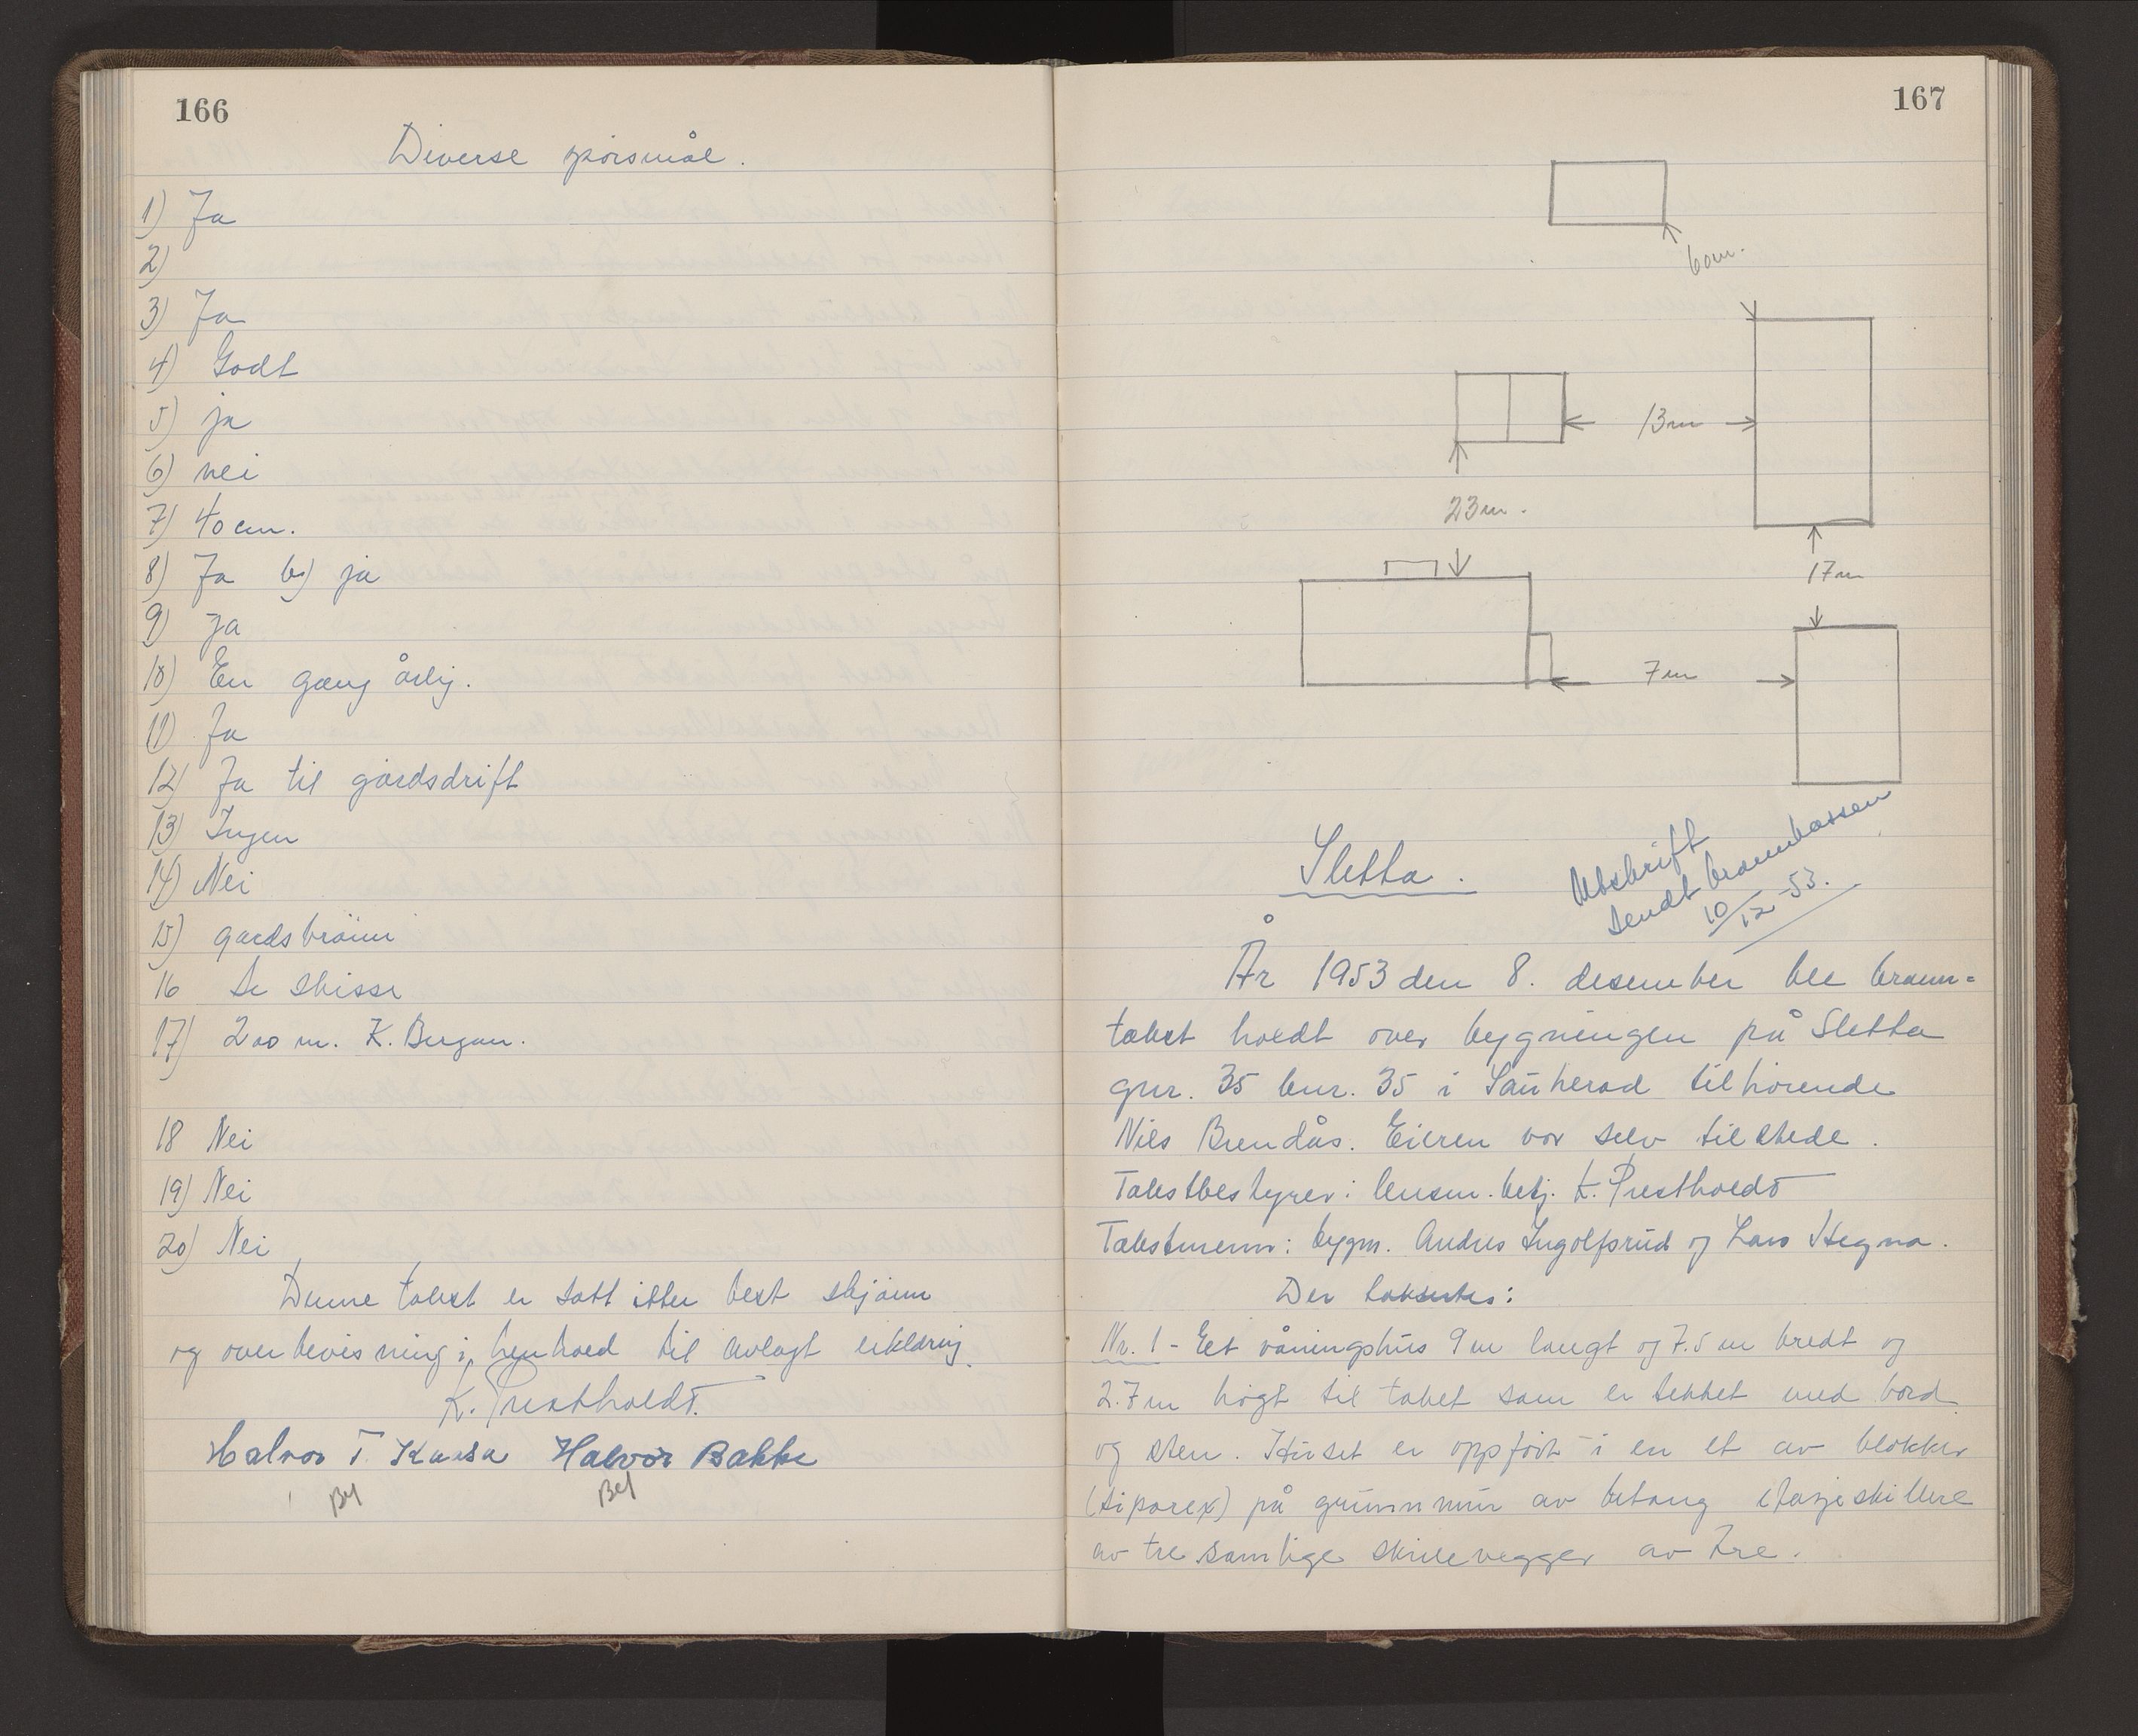 166
Diverse spørsmål.
1) Ja
2)
3) Ja
4) Godt
5) ja
6) nei
7) 40 cm.
8) Ja b) ja
9) Ja
10) En gang årlig.
11) Ja
12) Ja til gårdsdrift
13) Ingen
14) Nei
15) gardsbrønn
16 Se skisse
17) 200 m. K. Bergan.
18 Nei
19) Nei
20) Nei
Denne takst er satt etter best skjønn
og overbevisning i henhold til avlagt erklæring.
K. Prestholdt.
Halvor T. Kaasa Halvor Bakke
167
60m.
13m
23m.
17m
7m
Sletta.
Utskrift
sendt brannkassen
10/12-53.
År 1953 den 8. desember ble brann=
takst holdt over bygningen på Sletta
gnr. 35 bnr. 35 i Sauherad tilhørende
Nils Brendås. Eieren var selv tilstede.
Takstbestyrer: lensm. betj. K. Prestholdt
Takstmenn: bygm. Andres Ingolfsrud og Lars Hegna.
Der taksertes:
Nr. 1 - Et våningshus 9 m langt og 7.5 m bredt og
2.7 m høgt til taket som er tekket med bord
og sten. Huset er oppført i en et av blokker
(siporex) på grunnmur av betong etasjeskillere
av tre samtlige skillevegger av tre.